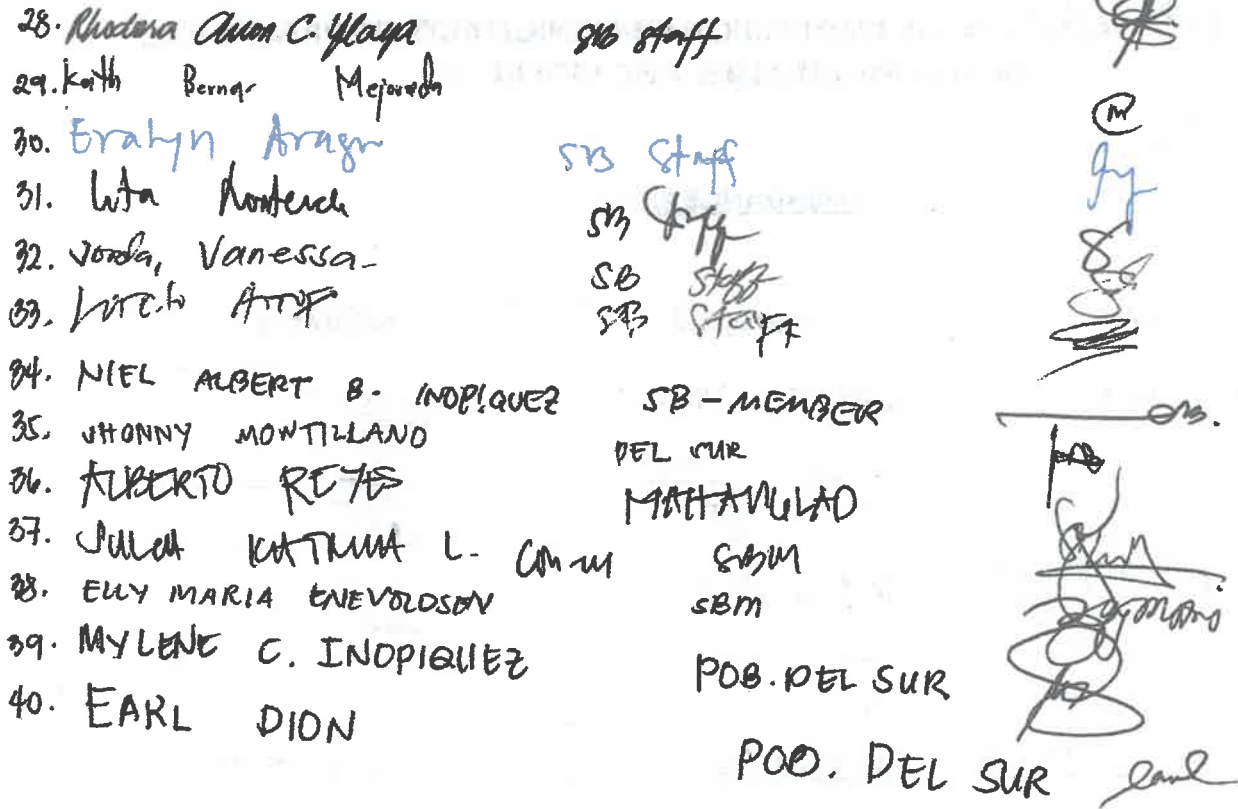 28. Rhodora Ann C. Ylaya SB Staff
29. Keith Bernar
30. Evalyn Aragon SB Staff
31. SB Staff
32. Vanessa SB Staff
33. SB Staff
34. NIEL ALBERT B. INOPIQUEZ SB-MEMBER
35. JHONNY MONTILLANO DEL SUR
36. ALBERTO REYES MAHANGLAD
37. KATRINA L. SBM
38. ELLY MARIA ENEVOLDSEN SBM
39. MYLENE C. INOPIQUEZ POB. DEL SUR
40. EARL DION POB. DEL SUR